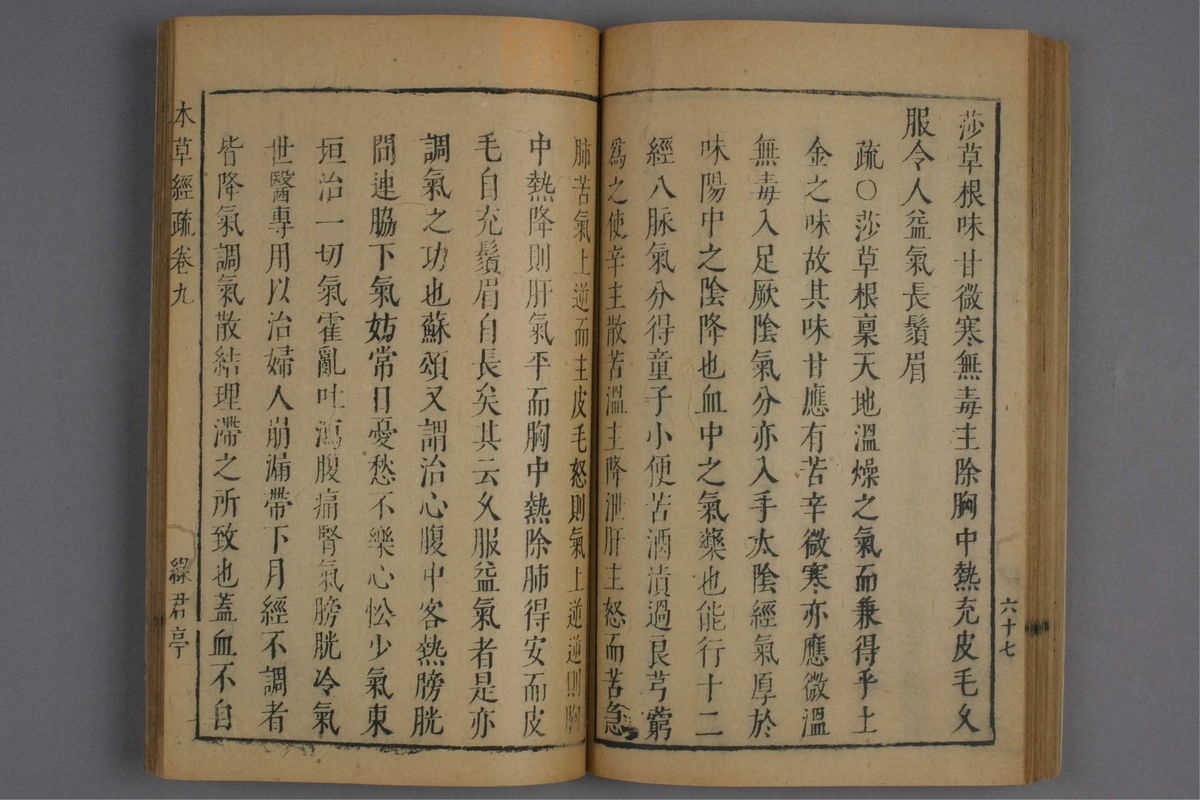 六十七
莎草根味甘微寒無毒主除胸中熱充皮毛乆
服令人益氣長鬚眉
疏○莎草根稟天地溫燥之氣而兼得乎土
金之味故其味甘應有苦辛微寒亦應微溫
無毒入足厥陰氣分亦入手太陰經氣厚於
味陽中之陰降也血中之氣藥也能行十二
經八脉氣分得童子小便苦酒漬過良芎藭
爲之使辛主散苦溫主降泄肝主怒而苦急
肺苦氣上逆而主皮毛怒則氣上逆逆則胸
中熱降則肝氣平而胸中熱除肺得安而皮
毛自充鬚眉自長矣其云乆服益氣者是亦
調氣之功也蘇頌又謂治心腹中客熱膀胱
間連脇下氣妨常日憂愁不樂心忪少氣東
垣治一切氣霍亂吐瀉腹痛腎氣膀胱冷氣
世醫專用以治婦人崩漏帶下月經不調者
皆降氣調氣散結理滯之所致也蓋血不自
本草經疏卷九
綠君亭